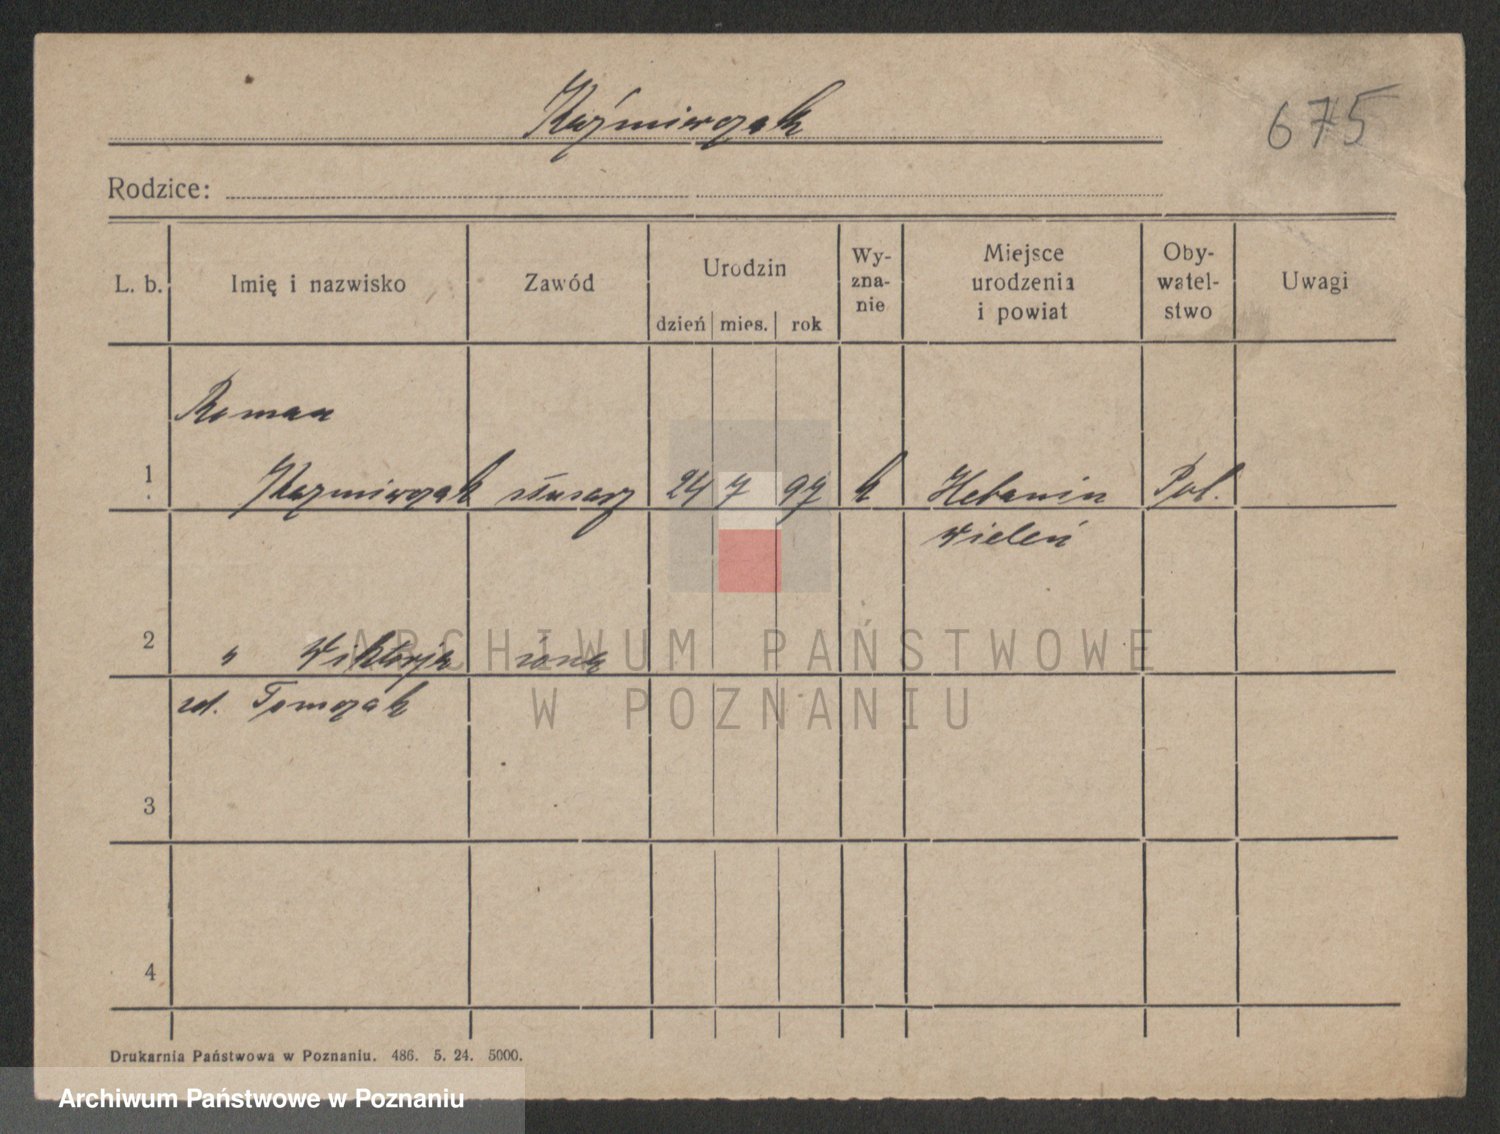 Kaźmierczak
675
Rodzice:
L. b.
Imię i nazwisko
Zawód
Urodzin
dzień mies. rok
Wy-
zna-
nie
Miejsce
urodzenia
i powiat
Oby-
watel-
stwo
Uwagi
Roman
1 Kazmierczak slusarz 24 7 97 k Hebanin Pol.
Wieleń
2 " Wiktorja żona
zd. Tomczak
3
4
ARCHIWUM PAŃSTWOWE
W POZNANIU
Drukarnia Państwowa w Poznaniu. 486. 5. 24. 5000.
Archiwum Państwowe w Poznaniu